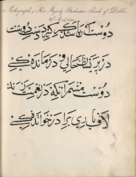 Autograph His Majesty
دوست آن گیرد دست دوست
در پریشان حالی و درماندگی
دوست مشمار آنکه در نعمت زند
لاف یاری و برادر خواندگی